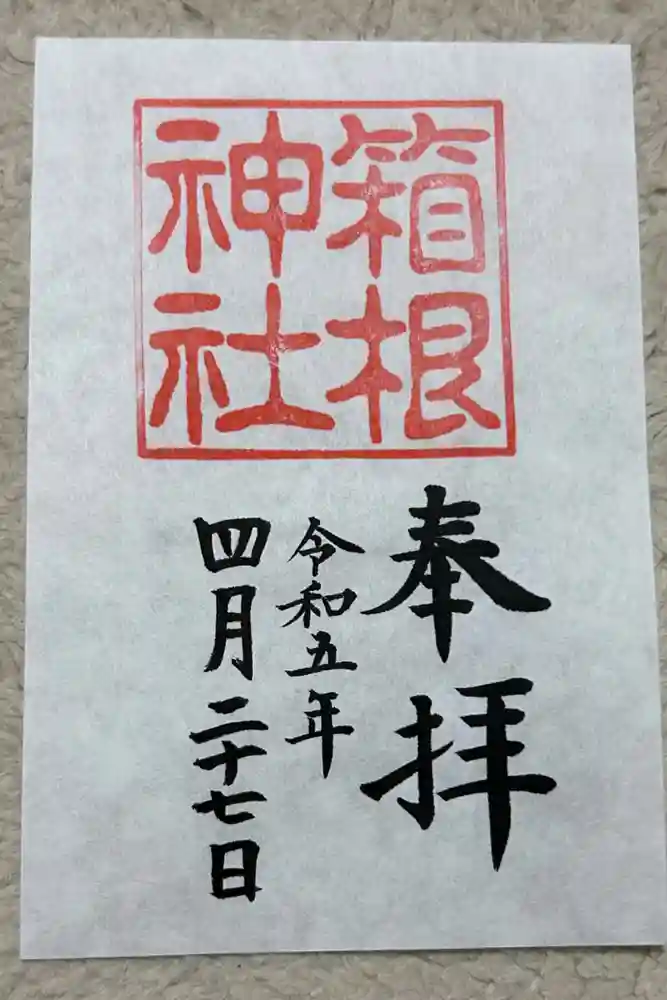 箱根
神社
奉拝
令和五年
四月二十七日